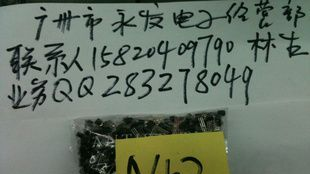 广州市永发电子经营部
联系人15820409790 林吉
业务QQ283278049